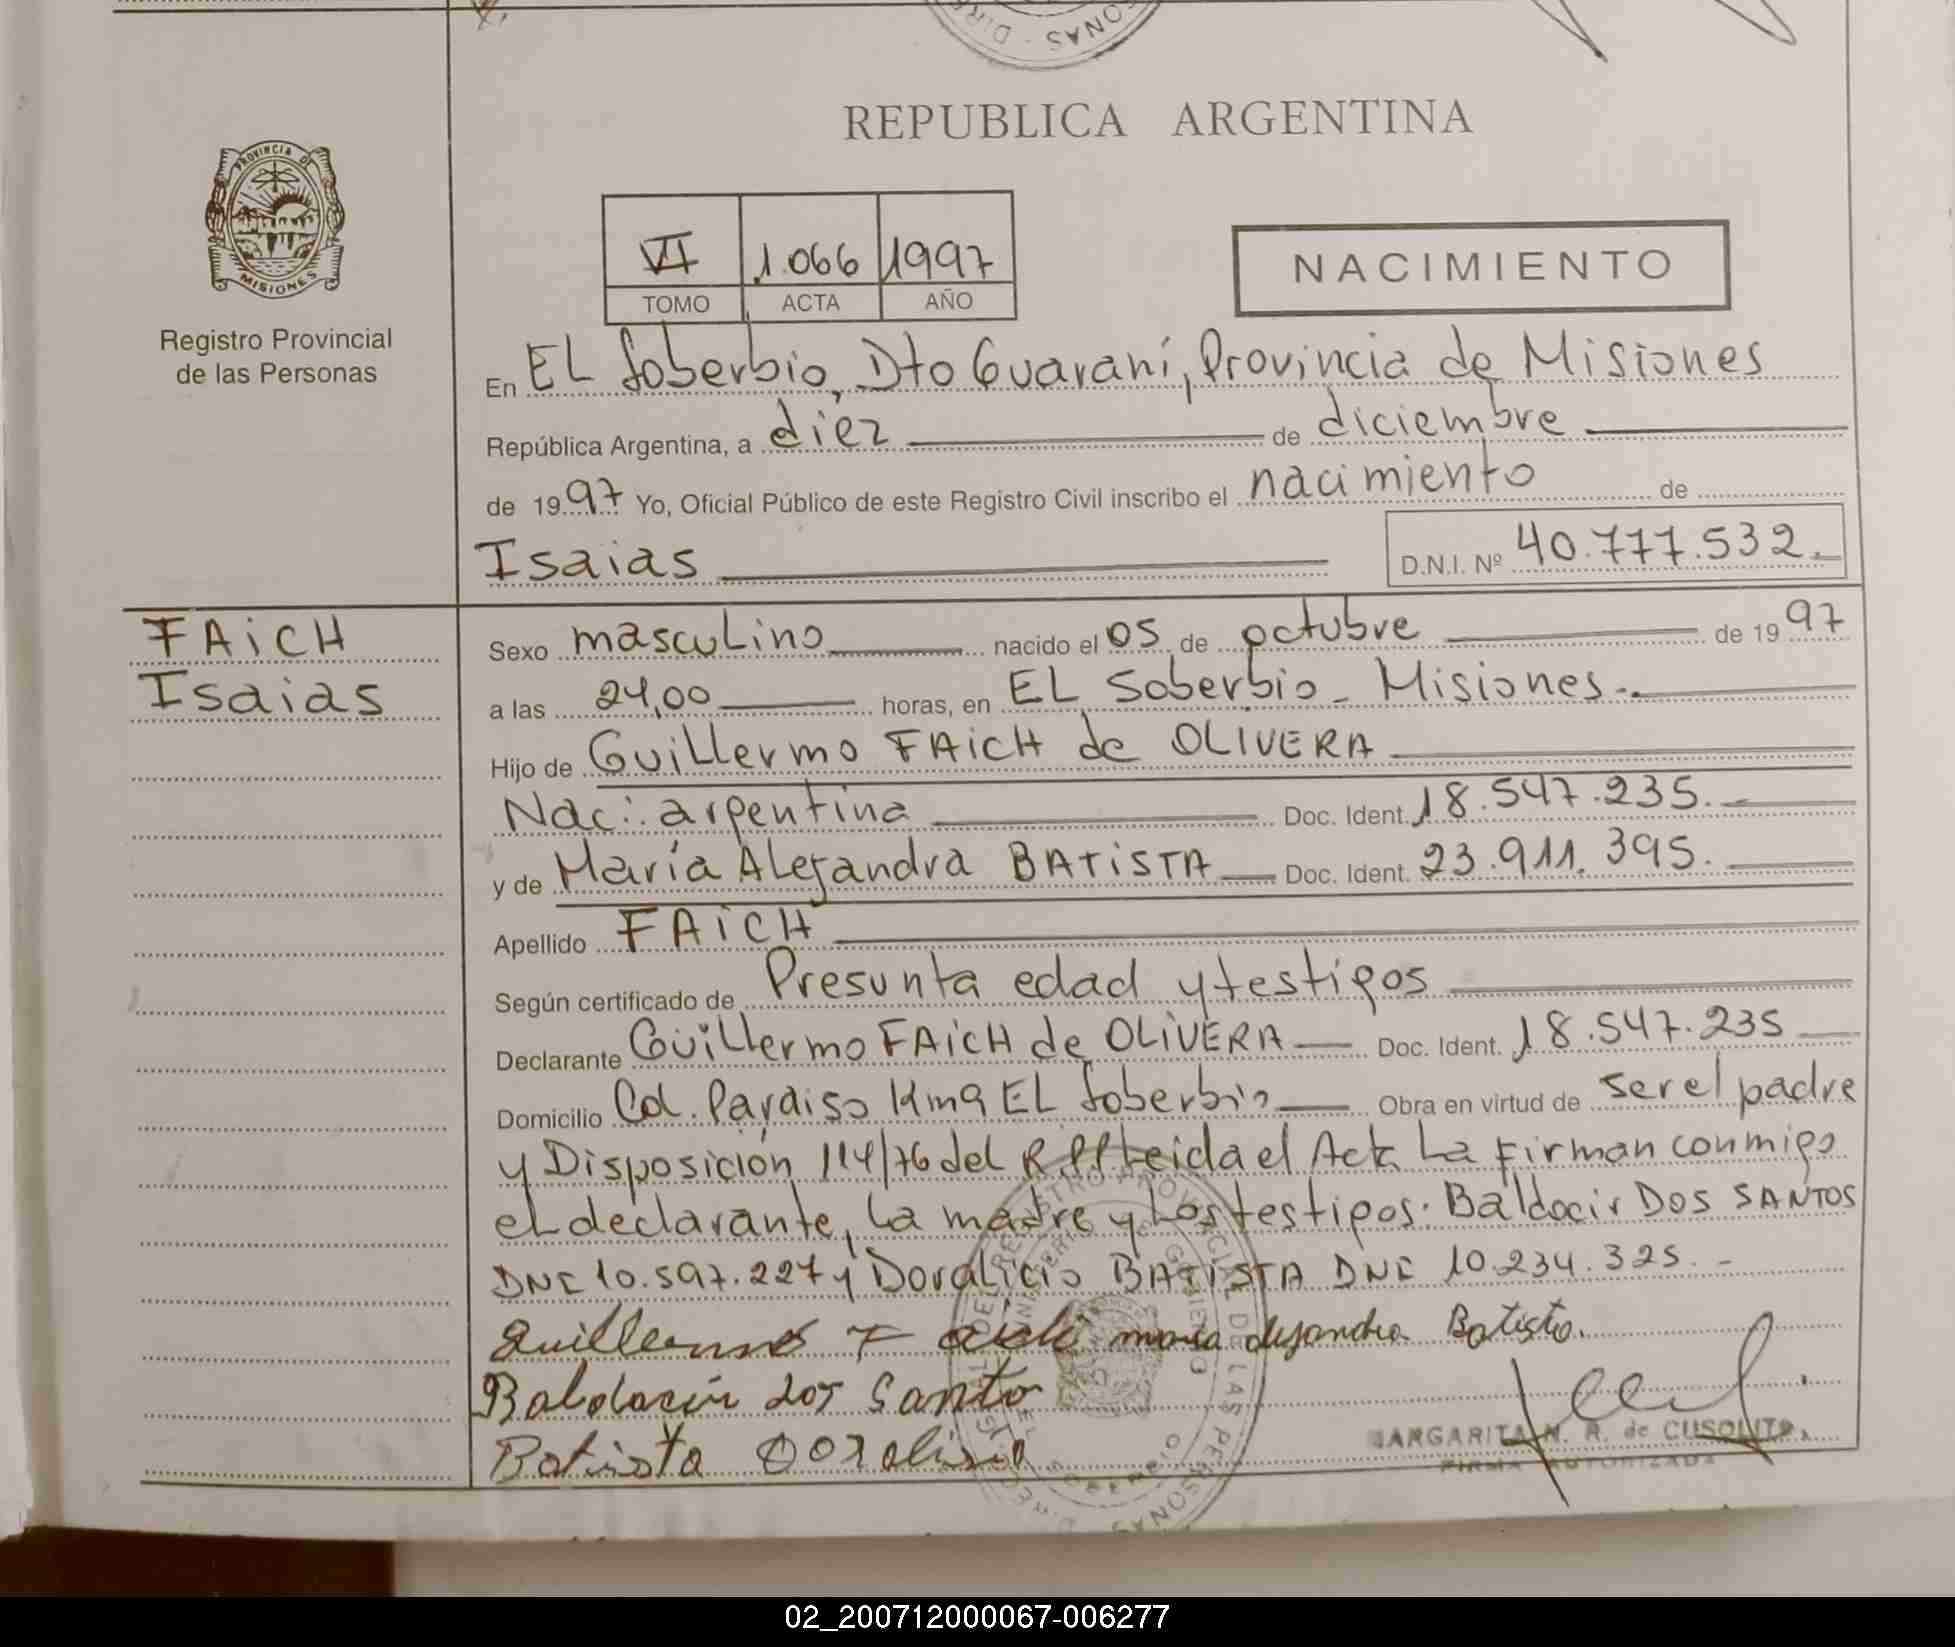 REPUBLICA ARGENTINA
PROVINCIA DE MISIONES
Registro Provincial
de las Personas
VI 1.066 1997
TOMO ACTA AÑO
NACIMIENTO
En EL Soberbio, Dto Guaraní, Provincia de Misiones
República Argentina, a diez de diciembre
de 1997 Yo, Oficial Público de este Registro Civil inscribo el nacimiento de
Isaias D.N.I. Nº 40.777.532.
FAiCH
Isaias
Sexo masculino nacido el 05 de octubre de 1997
a las 24,00 horas, en EL Soberbio - Misiones.
Hijo de Guillermo FAiCH de OLIVERA
Nac: argentina Doc. Ident. 18.547.235.
y de María Alejandra BATiSTA Doc. Ident. 23.911.395.
Apellido FAiCH
Según certificado de Presunta edad y testigos
Declarante Guillermo FAiCH de OLiVERA Doc. Ident. 18.547.235
Domicilio Col. Paraiso Km9 EL Soberbio Obra en virtud de ser el padre
y Disposición 114/76 del R.PP Leida el Acta La Firman conmigo
el declarante, la madre y Los testigos: Baldocir DOS SANTOS
DNI 10.597.227 y Doralicio BATISTA DNI 10.234.325.-
Guillermo F maria alejandra Batista.
dos Santo
Batista Doralisio
MARGARITA N. R. de CUSOLITO
FIRMA AUTORIZADA
02_200712000067-006277